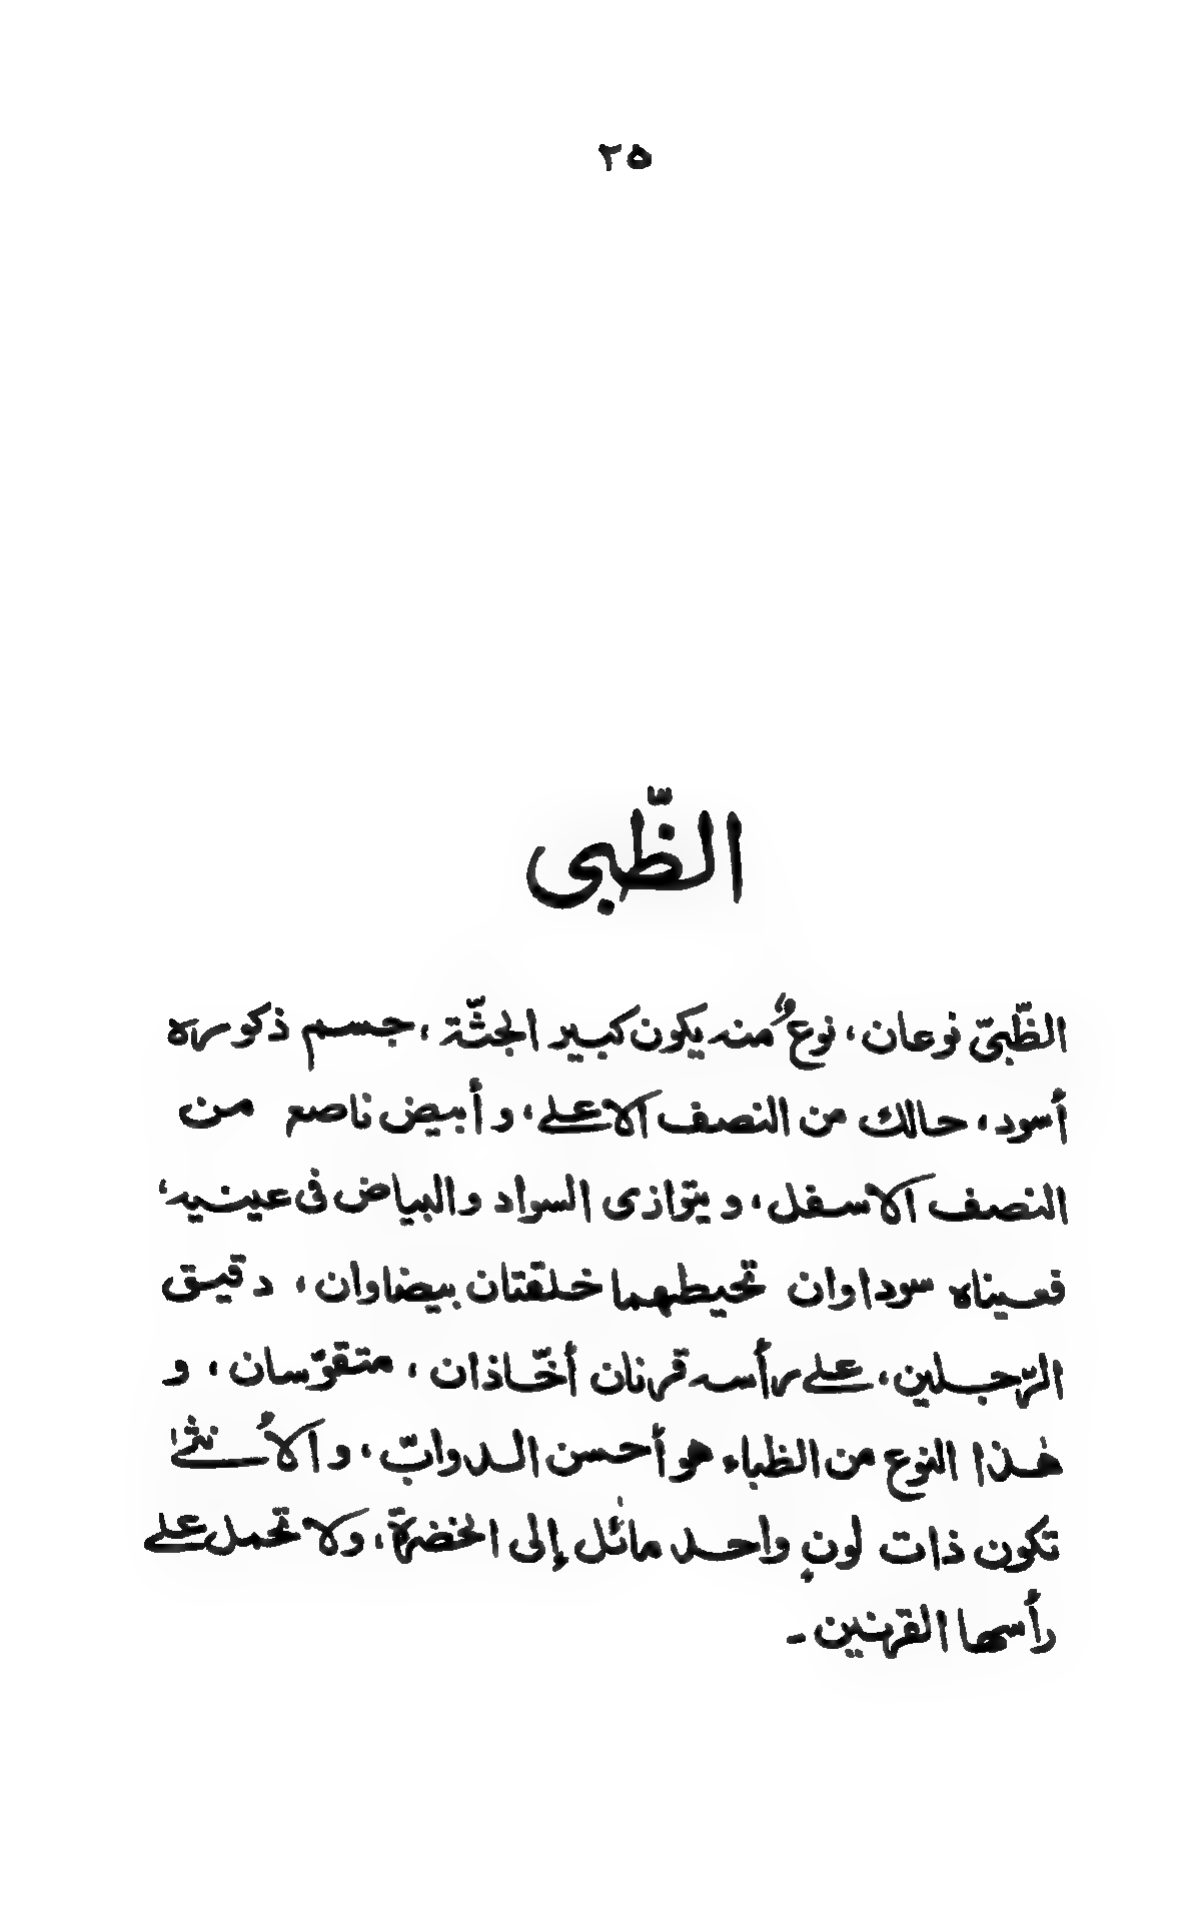 ٢٥
الظّبى
الظّبىّ نوعان، نوعٌ منه يكون كبير الجثّة، جسم ذكوره
أسود، حالك من النصف الاعلى، و أبيض ناصع من
النصف الاسفل، و يتوازى السواد والبياض فى عينيه،
فعيناه سوداوان تحيطهما خلقتان بيضاوان، دقيق
الرّجلين، على رأسه قرنان أخّاذان، متقوّسان، و
هٰذا النوع من الظباء هو أحسن الدوابّ، و الاُنثىٰ
تكون ذات لونٍ واحد مائل إلى الخضرة، ولا تحمل على
رأسها القرنين ـ